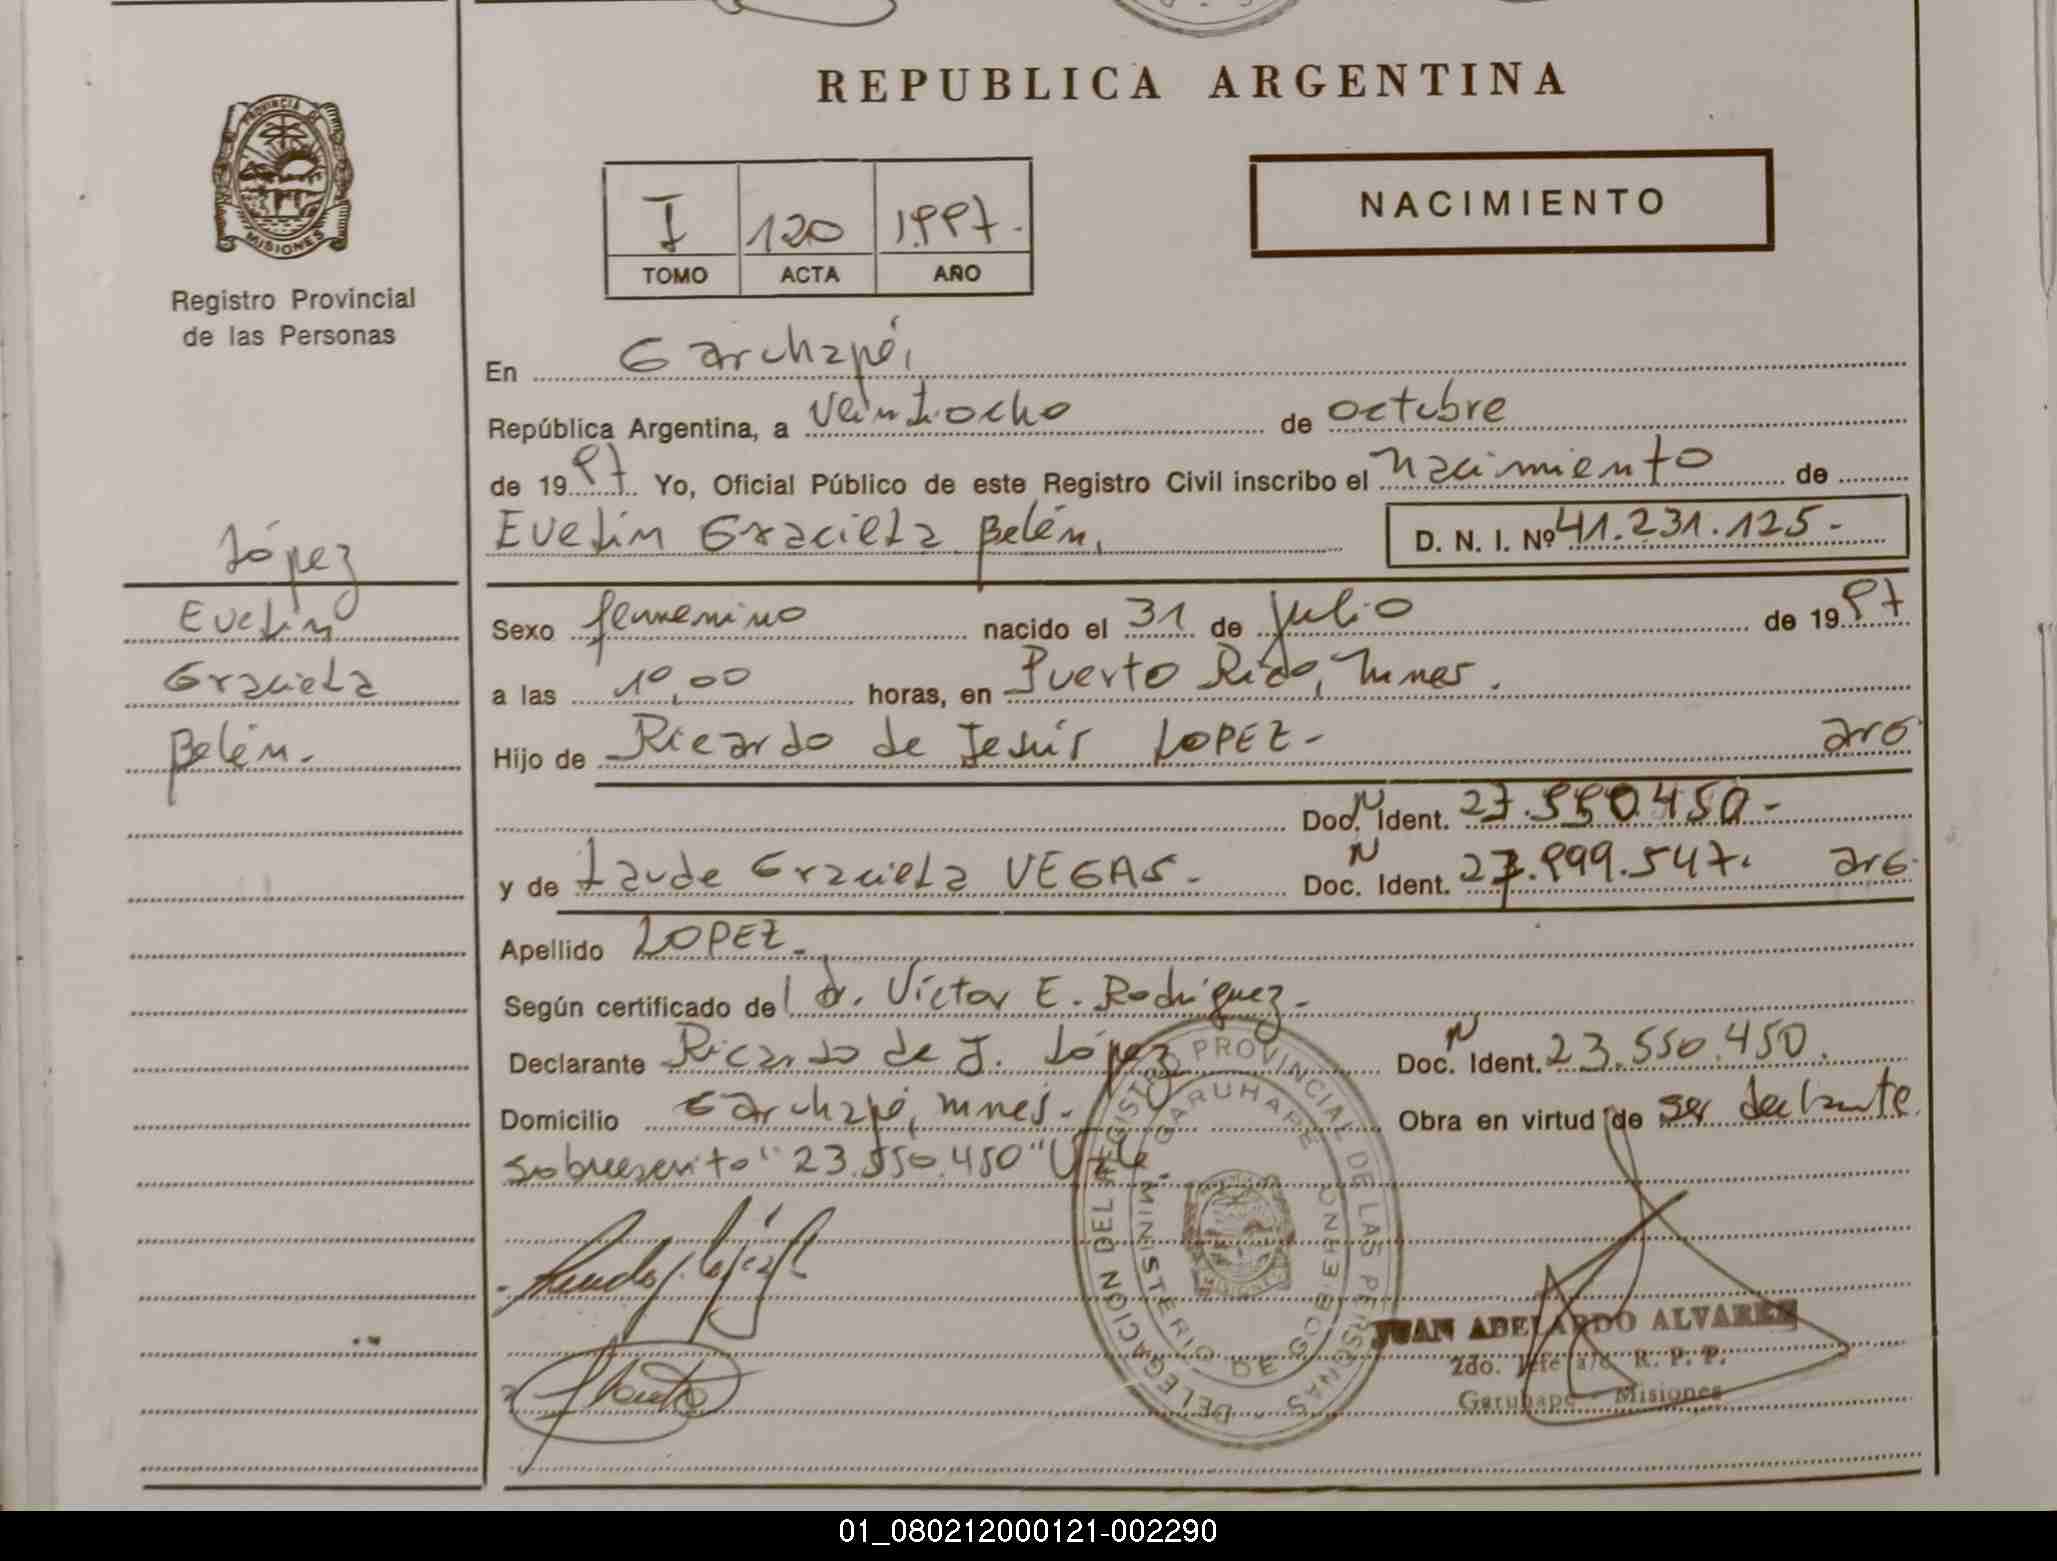 REPUBLICA ARGENTINA
PROVINCIA DE
MISIONES
Registro Provincial
de las Personas
I 120 1997.
TOMO ACTA AÑO
NACIMIENTO
En Garuhapé,
República Argentina, a veintiocho de octubre
de 1997 Yo, Oficial Público de este Registro Civil inscribo el nacimiento de
Evelin Graciela Belén, D. N. I. Nº 41.231.125-
López
Evelin
Graciela
Belén.
Sexo femenino nacido el 31 de julio de 1997
a las 10,00 horas, en Puerto Rico, Mnes.
Hijo de Ricardo de Jesús LOPEZ- arg
Doc. N Ident. 450-
y de Laude Graciela VEGAS- Doc. N Ident. 27.999.547. arg
Apellido LOPEZ-
Según certificado del dr. Víctor E. Rodríguez-
Declarante Ricardo de J. López Doc. N Ident. 23.550.450.
Domicilio Garuhapé, mnes. Obra en virtud de ser declarante.
sobreescrito "23.550.450" Vale.
DELEGACION DEL REGISTRO PROVINCIAL DE LAS PERSONAS
GARUHAPE
MINISTERIO DE GOBIERNO
JUAN ABELARDO ALVAREZ
2do. Jefe a/c R. P. P.
Garuhape - Misiones
01_080212000121-002290